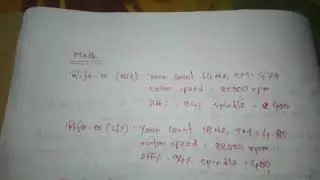 Math
Rifa-01 (R/S) Yarn count 16 Ne, TM = 4.70
rotor speed = 85000 rpm
Eff: = 94% spindle = 2400
Rifa-02 (L/S) Yarn count 18 Ne, TM = 4.80
rotor speed = 88000 rpm
Eff% = % spindle = 400